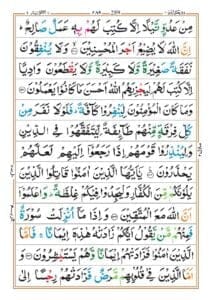 مِنْ عَدُوٍّ نَّيْلًا اِلَّا كُتِبَ لَهُمْ بِهٖ عَمَلٌ صَالِحٌ
اِنَّ اللّٰهَ لَا يُضِيْعُ اَجْرَ الْمُحْسِنِيْنَ وَلَا يُنْفِقُوْنَ
نَفَقَةً صَغِيْرَةً وَّلَا كَبِيْرَةً وَّلَا يَقْطَعُوْنَ وَادِيًا
اِلَّا كُتِبَ لَهُمْ لِيَجْزِيَهُمُ اللّٰهُ اَحْسَنَ مَا كَانُوْا
يَعْمَلُوْنَ وَمَا كَانَ الْمُؤْمِنُوْنَ لِيَنْفِرُوْا كَآفَّةً فَلَوْلَا نَفَرَ مِنْ
كُلِّ فِرْقَةٍ مِّنْهُمْ طَآئِفَةٌ لِّيَتَفَقَّهُوْا فِي الدِّيْنِ
وَلِيُنْذِرُوْا قَوْمَهُمْ اِذَا رَجَعُوْٓا اِلَيْهِمْ لَعَلَّهُمْ
يَحْذَرُوْنَ يٰٓاَيُّهَا الَّذِيْنَ اٰمَنُوْا قَاتِلُوا الَّذِيْنَ
يَلُوْنَكُمْ مِّنَ الْكُفَّارِ وَلْيَجِدُوْا فِيْكُمْ غِلْظَةً وَاعْلَمُوْٓا
اَنَّ اللّٰهَ مَعَ الْمُتَّقِيْنَ وَاِذَا مَآ اُنْزِلَتْ سُوْرَةٌ
فَمِنْهُمْ مَّنْ يَّقُوْلُ اَيُّكُمْ زَادَتْهُ هٰذِهٖٓ اِيْمَانًا فَاَمَّا
الَّذِيْنَ اٰمَنُوْا فَزَادَتْهُمْ اِيْمَانًا وَّهُمْ يَسْتَبْشِرُوْنَ وَ
اَمَّا الَّذِيْنَ فِيْ قُلُوْبِهِمْ مَّرَضٌ فَزَادَتْهُمْ رِجْسًا اِلٰى